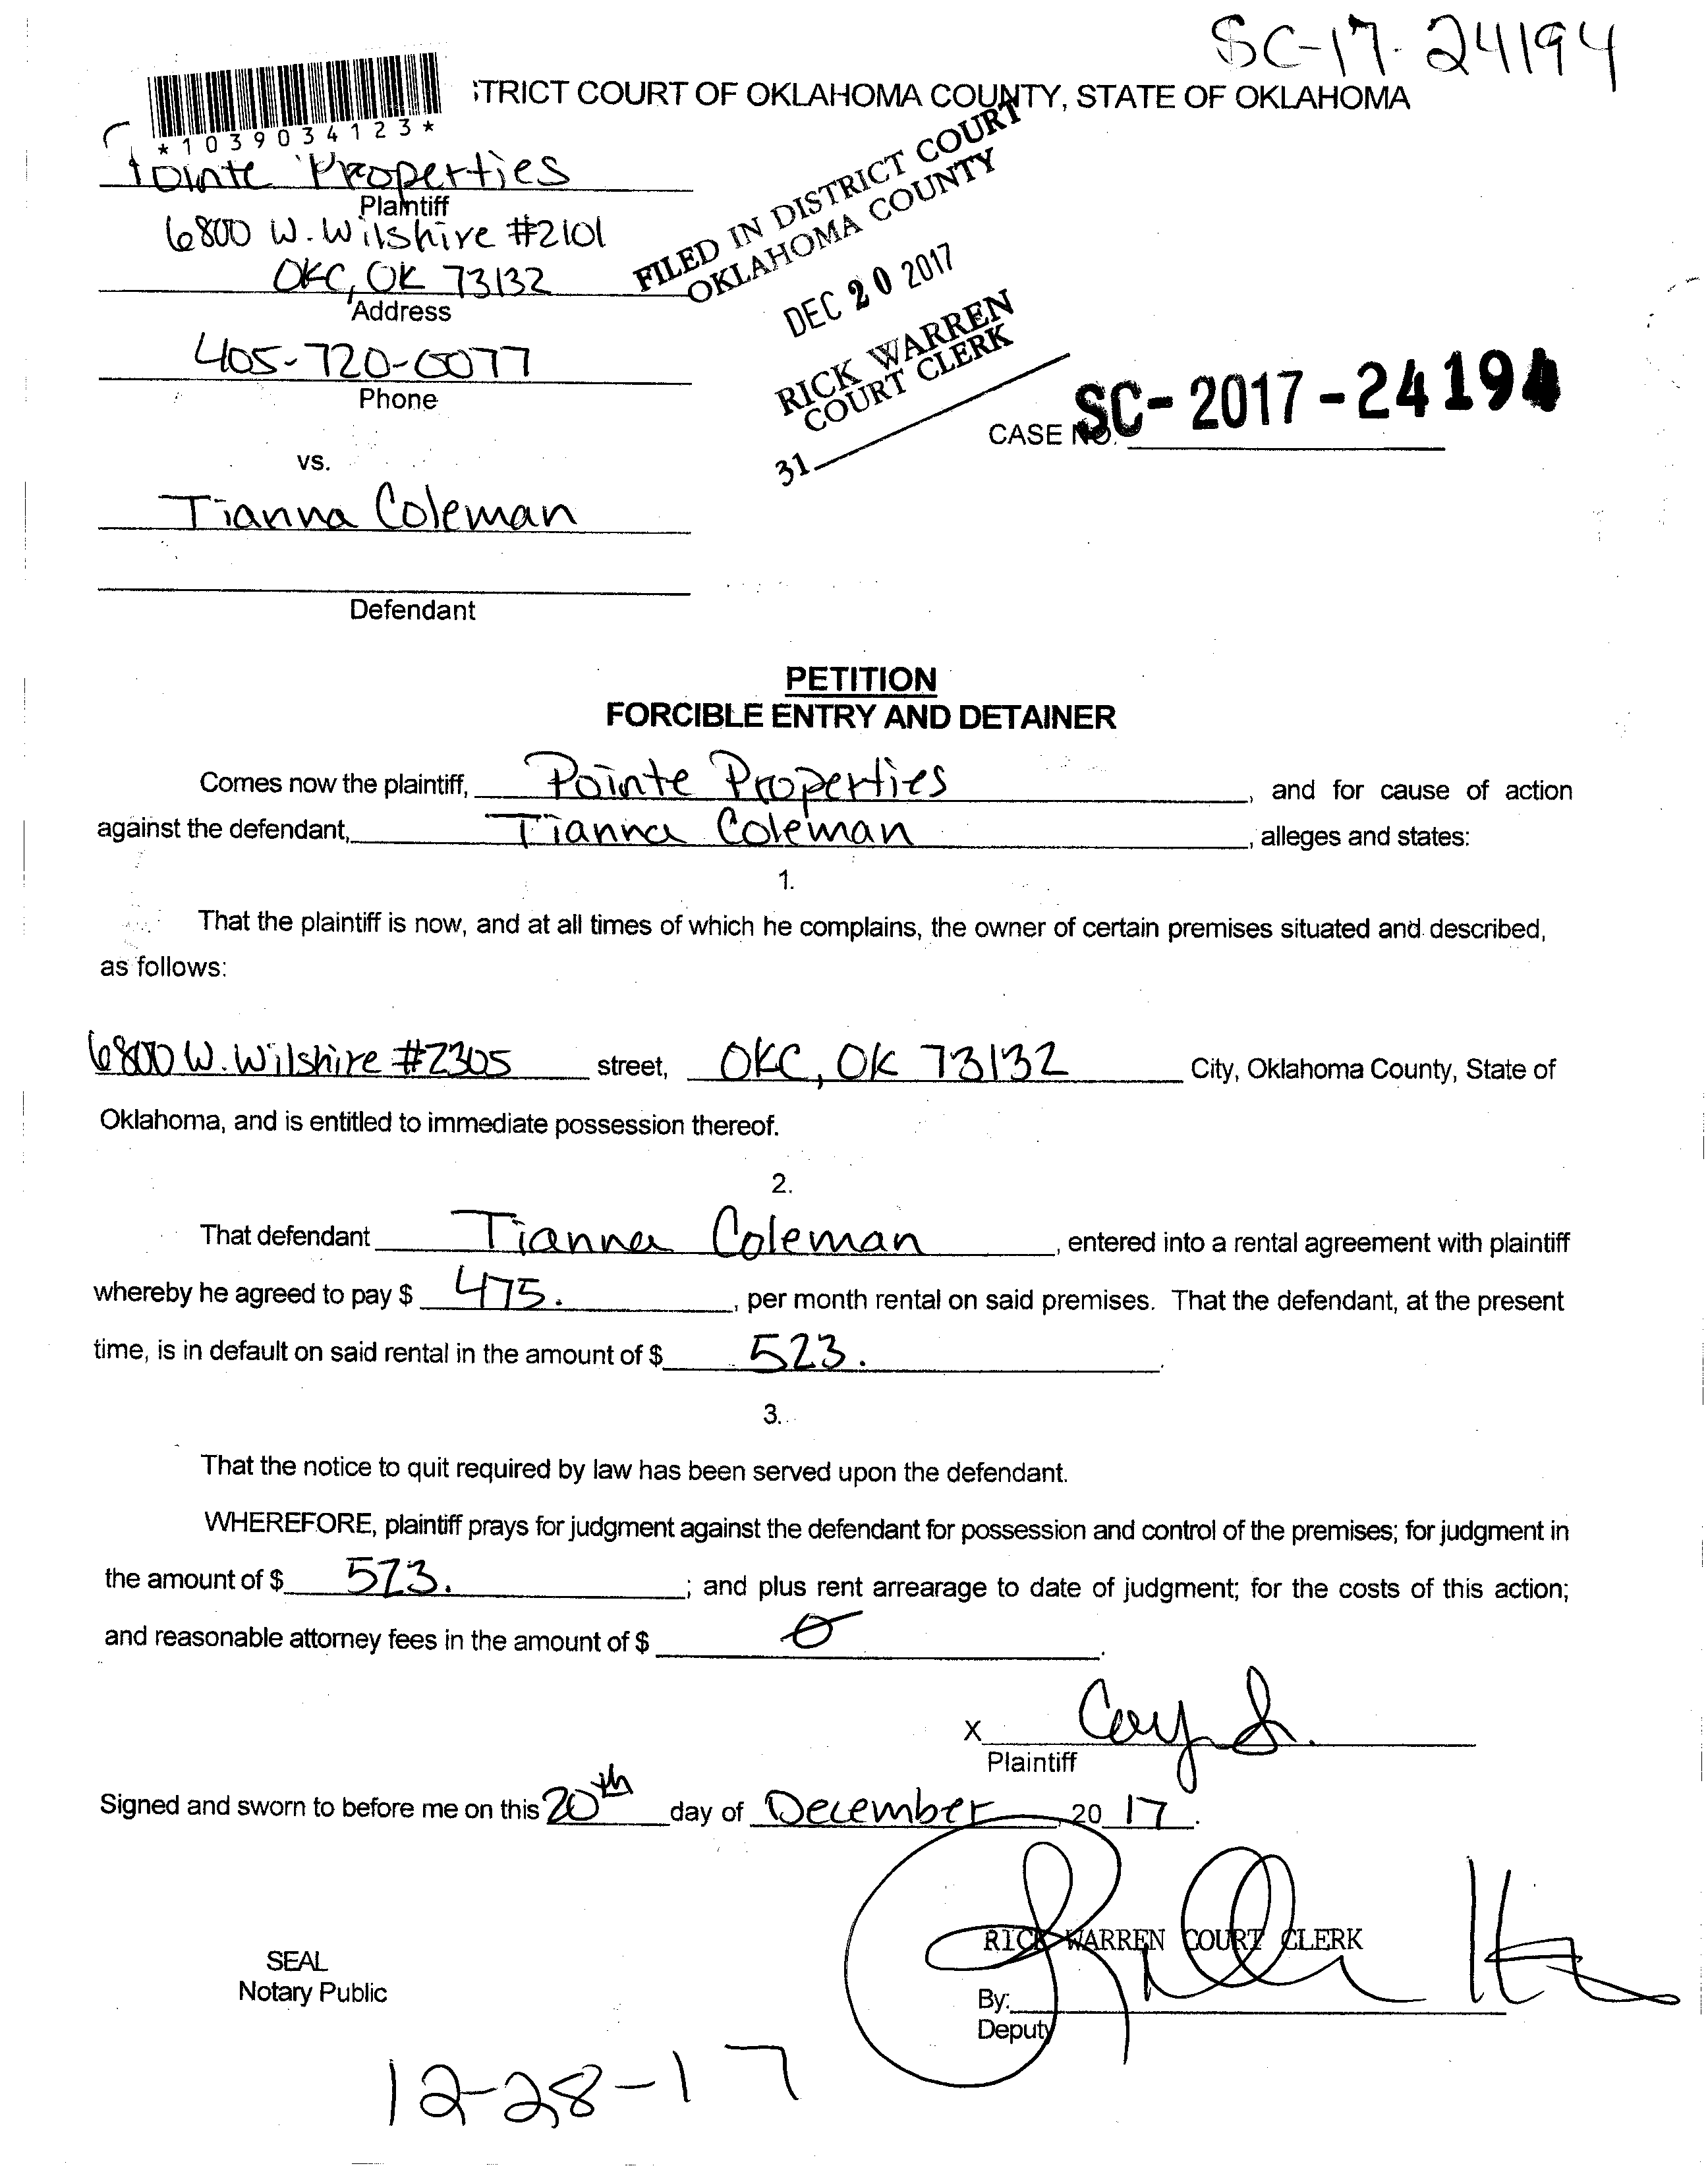 SC-17-24194
*1039034123*
STRICT COURT OF OKLAHOMA COUNTY, STATE OF OKLAHOMA
Pointe Properties
Plaintiff
6800 W. Wilshire #2101
OKC, OK 73132
Address
405-720-0077
Phone
FILED IN DISTRICT COURT
OKLAHOMA COUNTY
DEC 20 2017
RICK WARREN
COURT CLERK
31
CASE NO. SC-2017-24194
vs.
Tianna Coleman
Defendant
PETITION
FORCIBLE ENTRY AND DETAINER
Comes now the plaintiff, Pointe Properties, and for cause of action
against the defendant, Tianna Coleman, alleges and states:
1.
That the plaintiff is now, and at all times of which he complains, the owner of certain premises situated and described,
as follows:
6800 W. Wilshire #2305 street, OKC, OK 73132 City, Oklahoma County, State of
Oklahoma, and is entitled to immediate possession thereof.
2.
That defendant Tianna Coleman, entered into a rental agreement with plaintiff
whereby he agreed to pay $ 475., per month rental on said premises. That the defendant, at the present
time, is in default on said rental in the amount of $ 523.
3.
That the notice to quit required by law has been served upon the defendant.
WHEREFORE, plaintiff prays for judgment against the defendant for possession and control of the premises; for judgment in
the amount of $ 523.; and plus rent arrearage to date of judgment; for the costs of this action;
and reasonable attorney fees in the amount of $ 0.
X
Plaintiff
Signed and sworn to before me on this 20th day of December, 20 17.
RICK WARREN COURT CLERK
SEAL
Notary Public
By:
Deputy
12-28-17